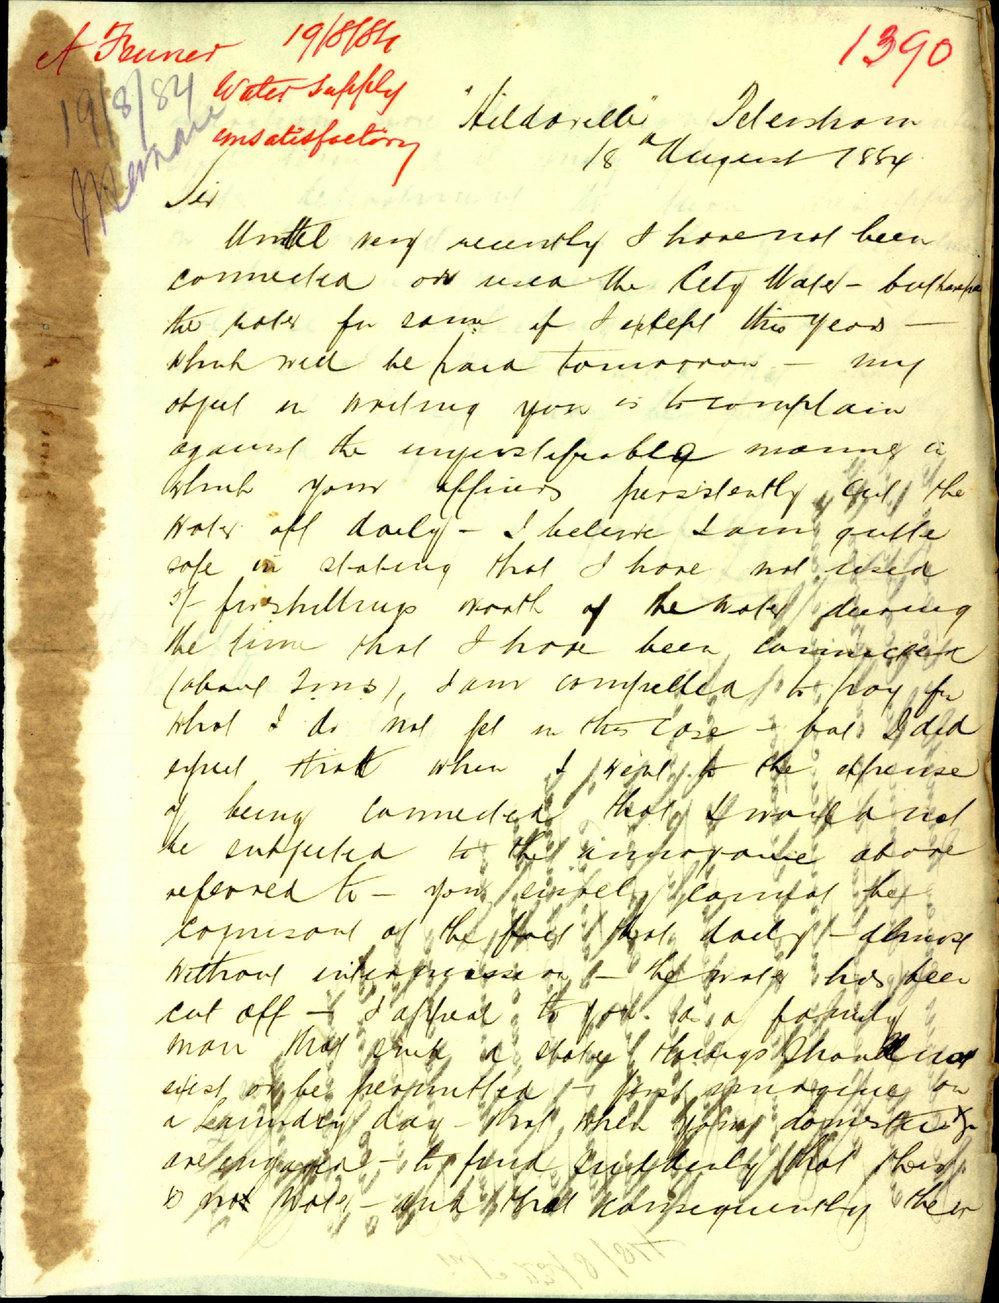 A Fenner 19/8/84
1390
Water supply
unsatisfactory
19/8/84
"Hildaville" Petersham
18th August 1884
Sir
Until very recently I have not been
connected or used the City Water - but have paid
the rates for same if I except this years -
which will be paid tomorrow - my
object in writing you is to complain
against the unjustifiable manner in
which your officers persistently cut the
water off daily - I believe I am quite
safe in stating that I have not used
5/- five shillings worth of the water during
the time that I have been connected
(about 2 mos), I am compelled to pay for
what I do not get in this case - but I did
expect that when I went to the expense
of being connected that I would not
be subjected to the annoyance above
referred to - you surely cannot be
cognisant of the fact that daily - almost
without intermission - the water has been
cut off - I appeal to you as a family
man that such a state things should not
exist or be permitted - just imagine on
a Laundry day - that when your domestics
are engaged - to find suddenly that there
is not water - and that consequently their